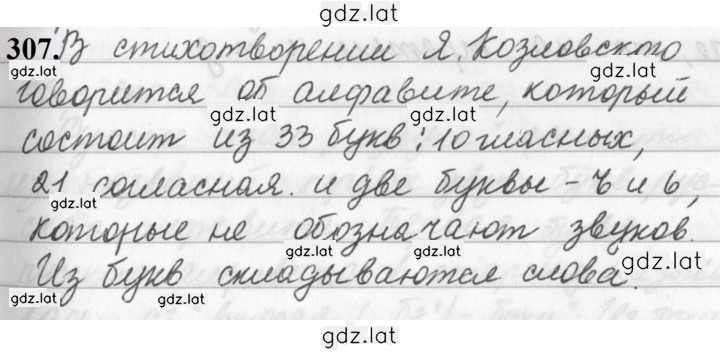 gdz.lat
307. В стихотворении Я. Козловского
gdz.lat gdz.lat
говорится об алфавите, который
gdz.lat
состоит из 33 букв: 10 гласных,
21 согласная и две буквы – ъ и ь,
gdz.lat
которые не обозначают звуков.
gdz.lat
Из букв складываются слова.
gdz.lat
gdz.lat gdz.lat gdz.lat
gdz.lat